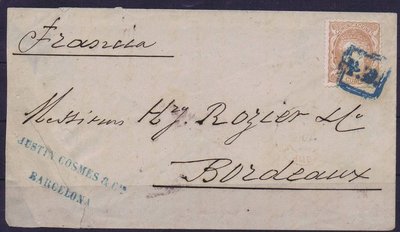 Francia
P.D.
Messieurs Hry Rozier &Co
Bordeaux
JUSTIN COSMES & Cie
BARCELONA